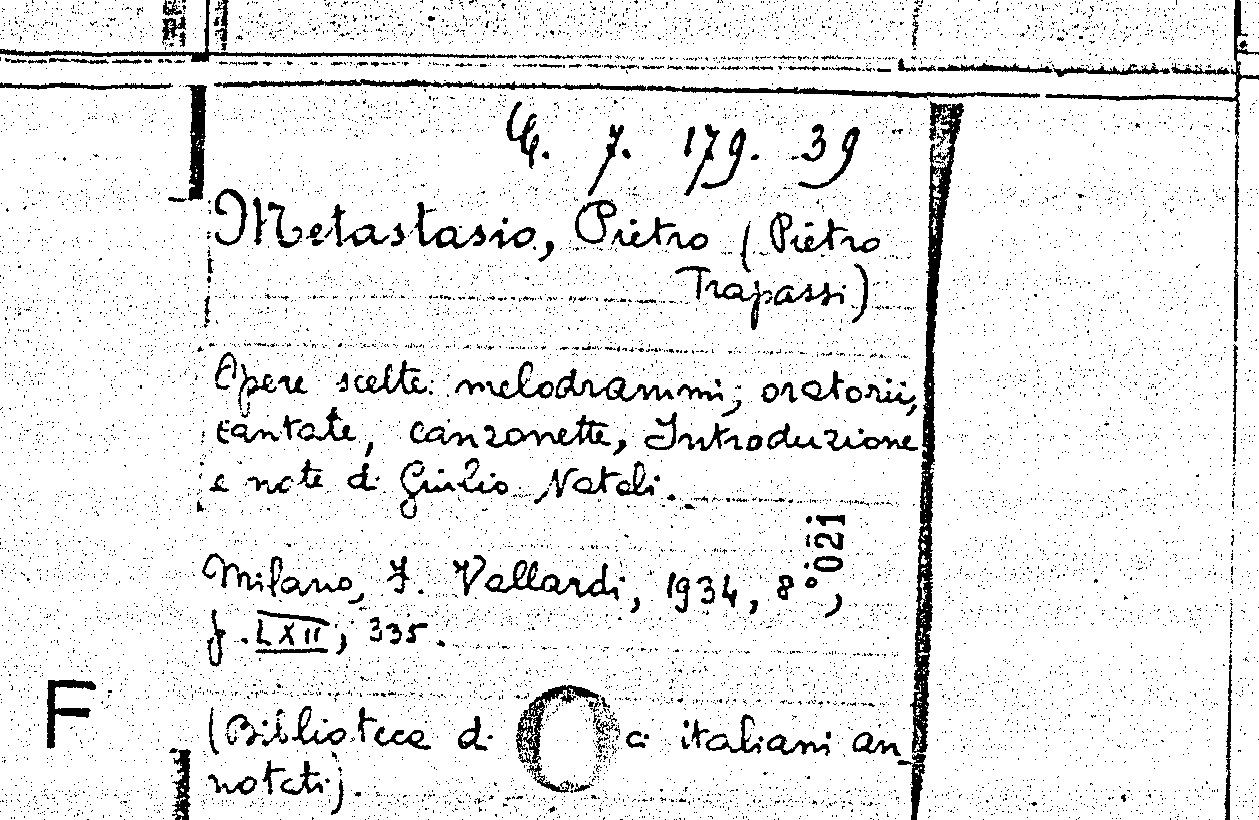 7. 179. 39
Metastasio, Pietro (Pietro
Trapassi)
Opere scelte: melodrammi, oratorii,
cantate, canzonette, Introduzione
e note di Giulio Natali.
021
Milano, F. Vallardi, 1934, 8°,
p. LXII, 335.
F
(Biblioteca di O ci italiani an_
notati).